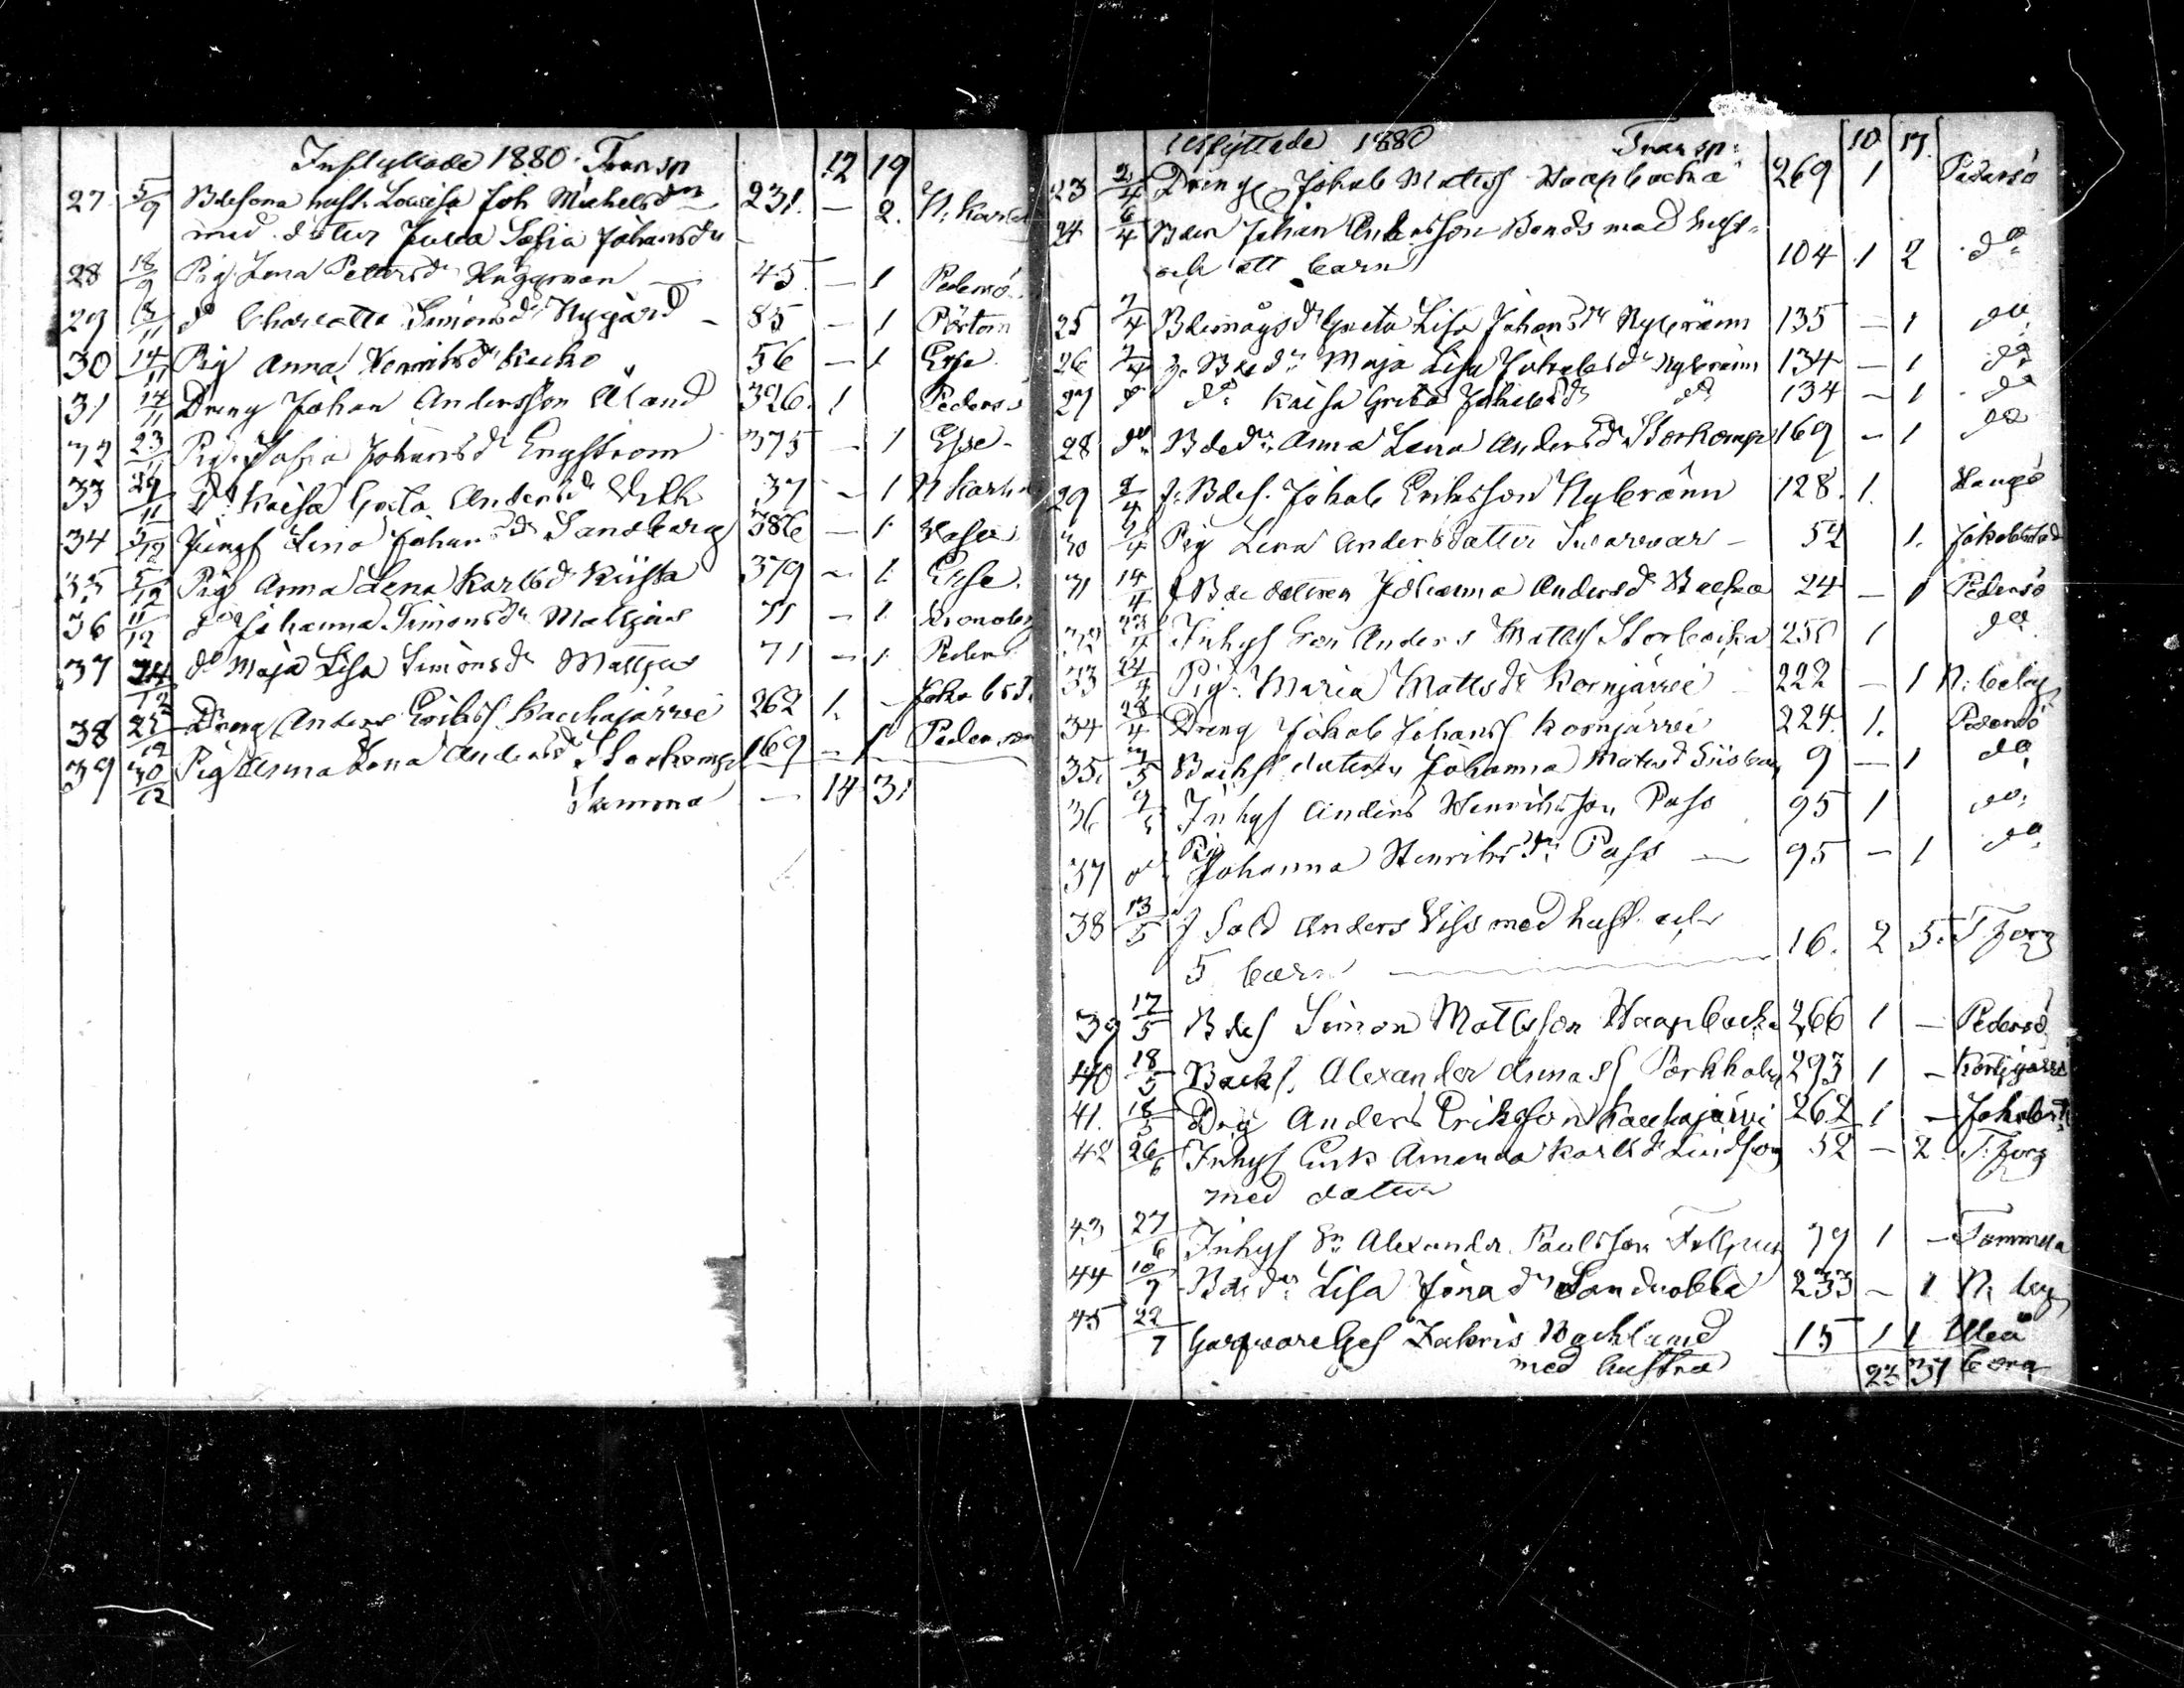 Inflyttade 1880. Transp 12 19
27 5/9 Bdesona hust. Lovisa Joh Michelsdr 231. — 2. N: Karle
med dotter Julia Sofia Johansdr
28 18/9 Pig Lena Pettersdr Häggman — 45 — 1 Pedersö
29 13/11 do Charlotta Simonsdr Nygård — 85 — 1 Pörtom
30 14/11 Pig Anna Henriksdr 56 — 1 Esse
31 14/11 Dreng Johan Andersson Åland 326. 1 Pedersö
32 23/11 Pig. Sofia Johansdr Engström 375 — 1 Esse
33 29/11 Do Kaisa Greta Andersdr 37 — 1 N Karle
34 5/12 Jungf Lina Johansdr Sandberg 386 — 1 Vasa
35 5/12 Pig Anna Lena Karlsdr Kiista 379 — 1. Esse.
36 11/12 do Johanna Simonsdr Mattjus 71 — 1. Kronoby
37 24/12 do Maja Lisa Simonsdr Mattjus 71 — 1. Peders
38 25/12 Dreng Anders Erikss Kaukajärvi 262 1. — Jakobst.
39 30/12 Pig Anna Lena Andersdr Storkamp 169 — 1 Pedersö
Summa — 14 31
Utflyttade 1880 Transp: 10 17.
23 2/4 Dreng Jakob Matts Haapbacka 269 1 Pedersö
24 6/4 Bden Johan Andersson Bonds med hust.
och ett barn 104 1 2 do
25 7/4 Bdemågsdr Greta Lisa Johansdr Nybränn 135 — 1 do
26 7/4 f. Bdedr Maja Lisa Jakobsdr Nybränn 134 — 1 do
27 do do Kaisa Greta Jakobsdr do 134 — 1 do
28 do Bdedr. Anna Lena Andersdr Storkamp 169 — 1 do
29 9/4 f. Bdes. Jakob Eriksson Nybränn 128. 1. Hangö
30 9/4 Pig Lena Andersdotter Svarvar — 52 1. Jakobstad
31 14/4 f Bde dottren Johanna Andersd Backa 24 — 1 Pedersö
32 23/4 Inhys son Anders Matts Storbacka 256 1 do
33 24/4 Pig. Maria Mattsdr Kornjärvi — 222 — 1 N: Carleby
34 28/4 Dreng Jakob Johans Kornjärvi 224. 1. Pedersö
35. 7/5 Backst dottern Johanna Matsd 9 — 1 do
36 9/5 Inhys Anders Henriksson Pass 95 1 do:
37 do. Pig Johanna Henriksdr Pass — 95 — 1 do.
38 13/5 f Sold Anders Viss med hust. och
5 barn — 16. 2 5. T Jorg
39 17/5 Bdes Simon Mattsson Haapbacka 266 1 — Pedersö
40 18/5 Backs. Alexander Porkholm 293 1 — Kortjärvi
41. 18/5 Drg Anders Eriksson Kaukajärvi 262 1 — Jakobst
42 26/6 Inhys Enk Amanda Karlsdr Lindfors 52 — 2 T. Jorg
med dotter
43 27/6 Inhys Sn Alexander Paulsson 79 1 — Tammela
44 10/7 Bdedr. Lisa Jonadr Sandnabba 233 — 1 N: Carleby
45 22/7 Garfvare Ges Zakris Backlund 15 1 1 Uleå
med hustru 23 37 borg